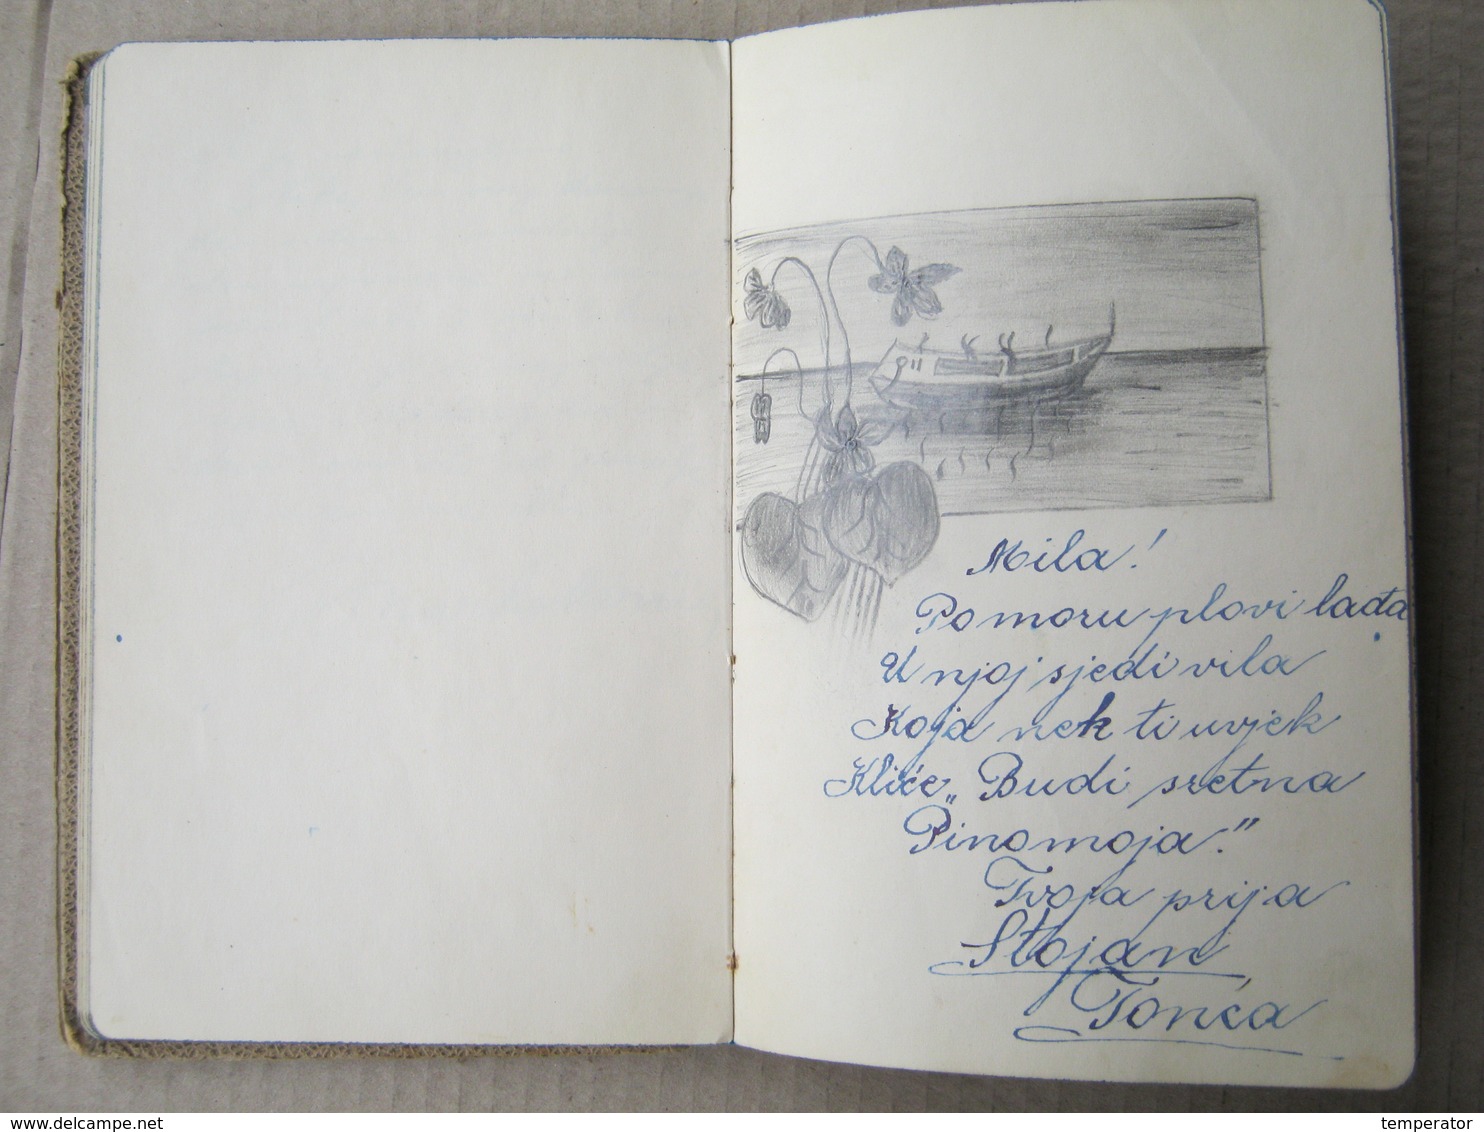 Mila!
Po moru plovi lađa
U njoj sjedi vila
Koja nek ti uvjek
Kliće „Budi sretna
Pino moja."
Tvoja prija
Stojan
Tonća
www.delcampe.net
temperator